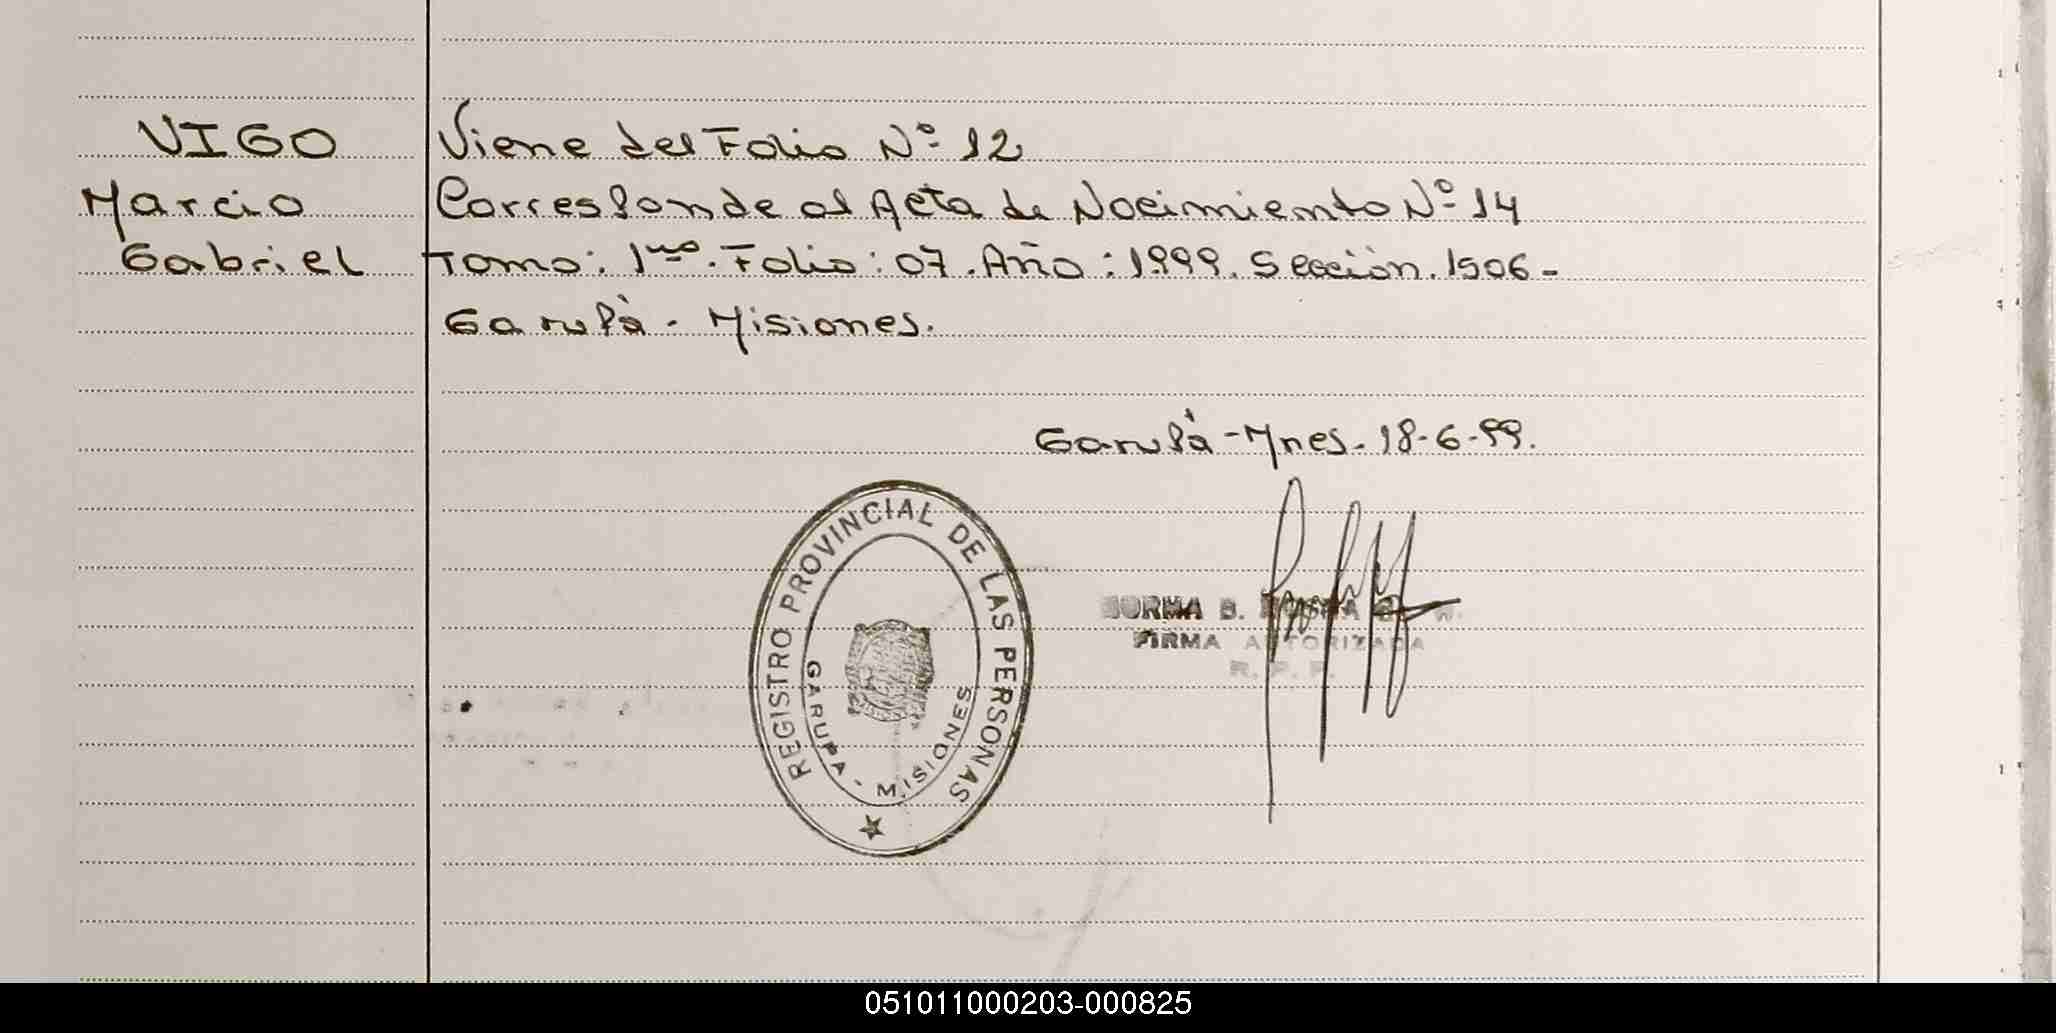 VIGO
Marcio
Gabriel
Viene del Folio Nº 12
Corresponde al Acta de Nacimiento Nº 14
Tomo: 1ro. Folio: 07. Año: 1999. Sección. 1506-
Garupà - Misiones.
Garupà - Mnes. 18-6-99.
REGISTRO PROVINCIAL DE LAS PERSONAS
GARUPA - MISIONES
NORMA B.
FIRMA AUTORIZADA
R. P. P.
051011000203-000825